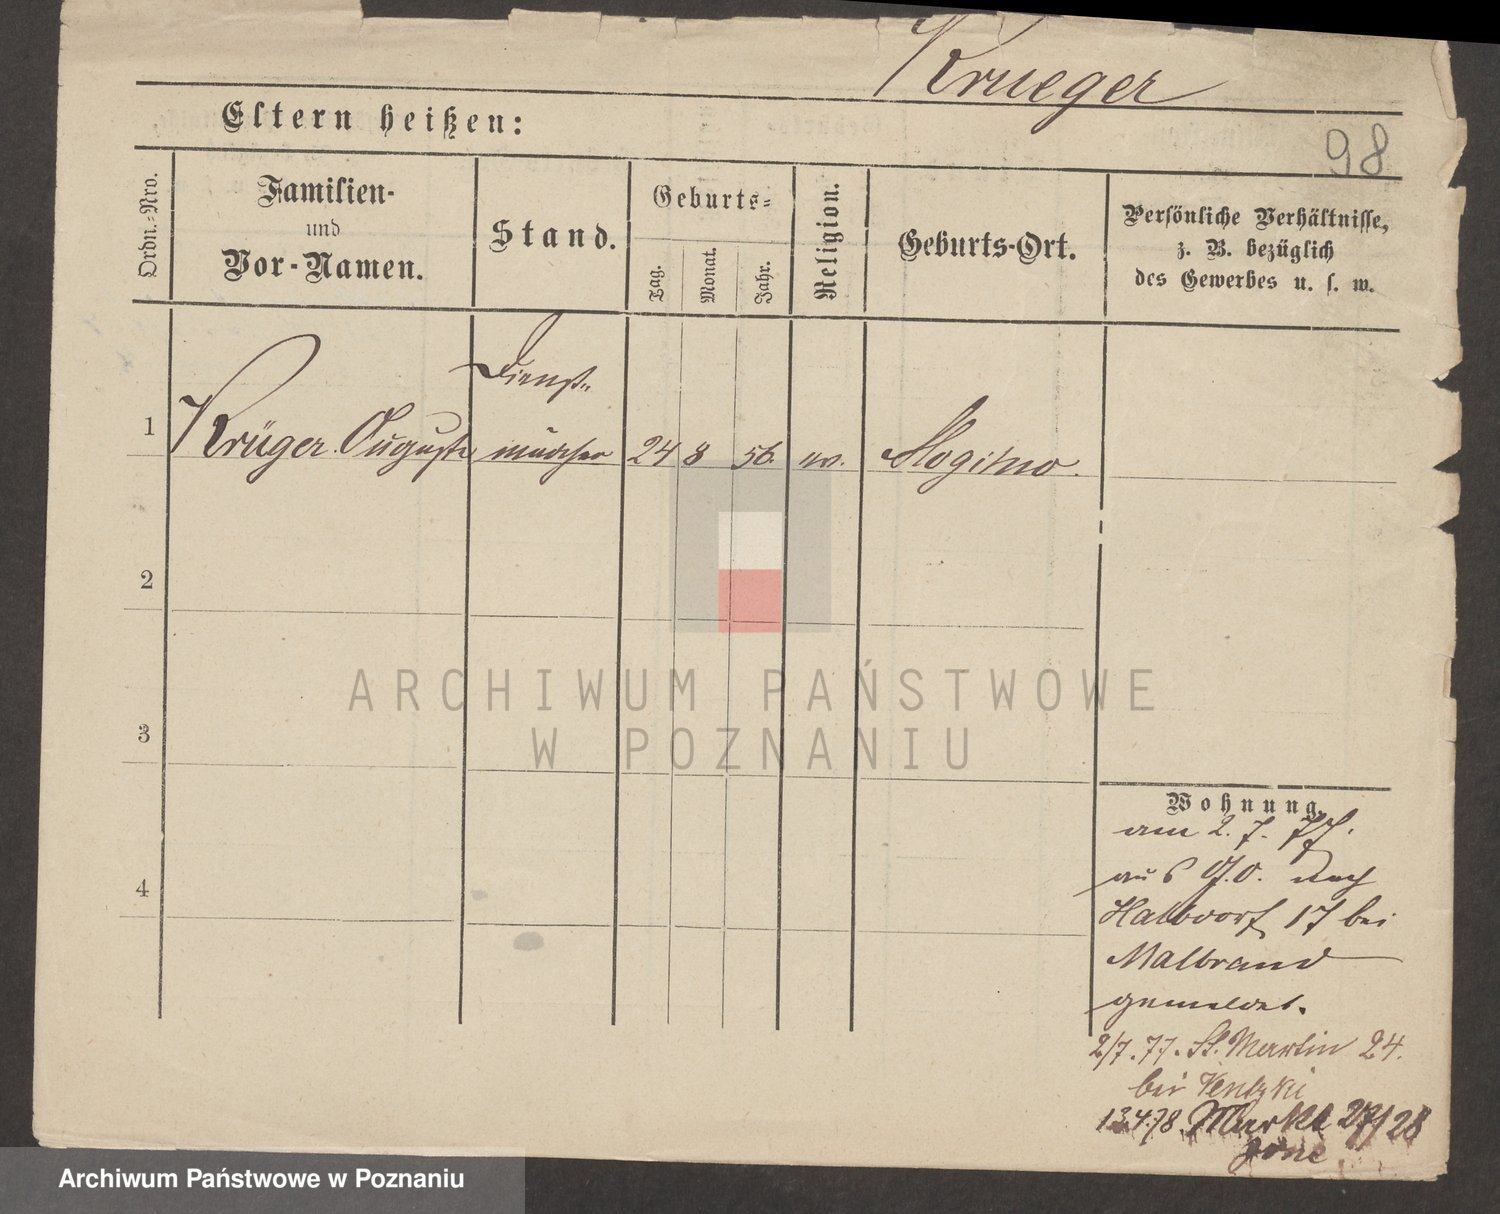 Krueger
Eltern heißen:
98
Ordn.-Nro.
Familien-
und
Vor-Namen.
Stand.
Geburts-
Tag.
Monat.
Jahr.
Religion.
Geburts-Ort.
Persönliche Verhältnisse,
z. B. bezüglich
des Gewerbes u. s. w.
1
Krüger Auguste
Dienst-
mädchen
24
8
56.
ev.
Mogilno.
2
3
4
Wohnung.
am 2. 7. 77.
aus G. O. nach
Halbdorf 17 bei
Malbrand
gemeldet.
2/7. 77. St. Martin 24.
bei Ventzki
13.4.78. Markt 27/28
ARCHIWUM PAŃSTWOWE
W POZNANIU
Archiwum Państwowe w Poznaniu